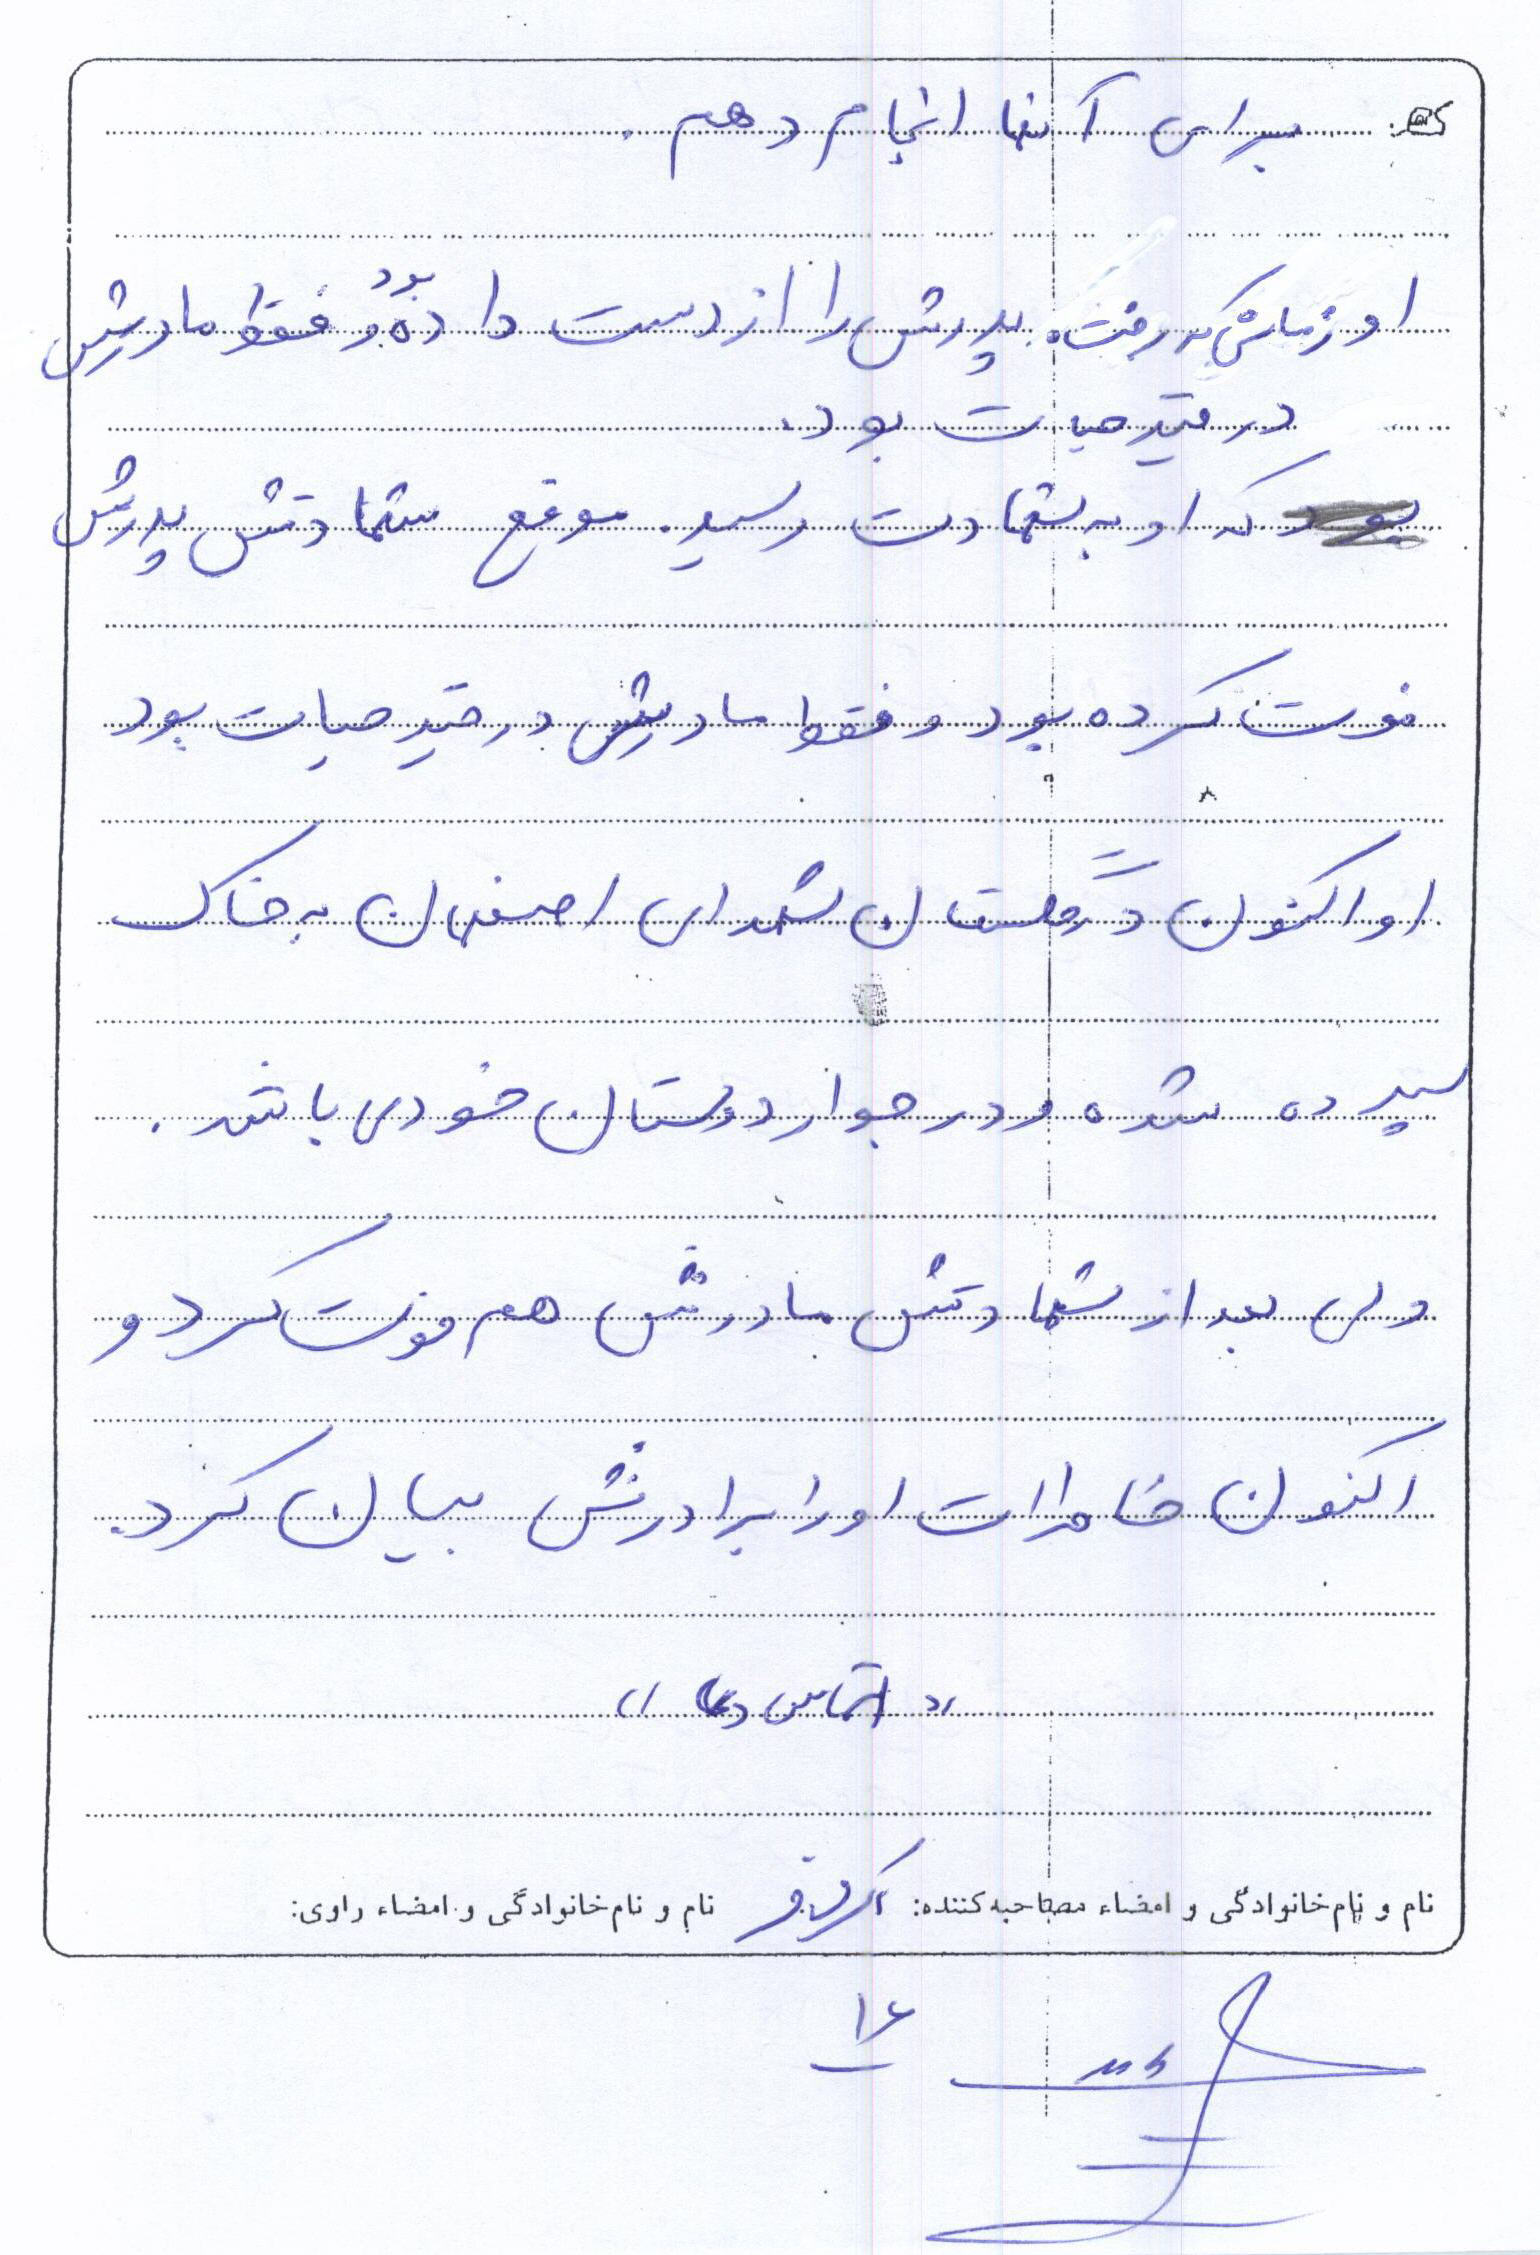 برای آنها انجام دهم.
او زمانی که رفت پدرش را از دست داده بود و فقط مادرش
در قید حیات بود.
که او به شهادت رسید. موقع شهادتش پدرش
فوت کرده بود و فقط مادرش در قید حیات بود
او اکنون در گلستان شهدای اصفهان به خاک
سپرده شده و در جوار دوستان خود می باشد.
ولی بعد از شهادتش مادرش هم فوت کرد و
اکنون خاطرات او را برادرش بیان کرد.
«التماس دعا»
نام و نام خانوادگی و امضاء مصاحبه کننده: نام و نام خانوادگی و امضاء راوی:
۱۶